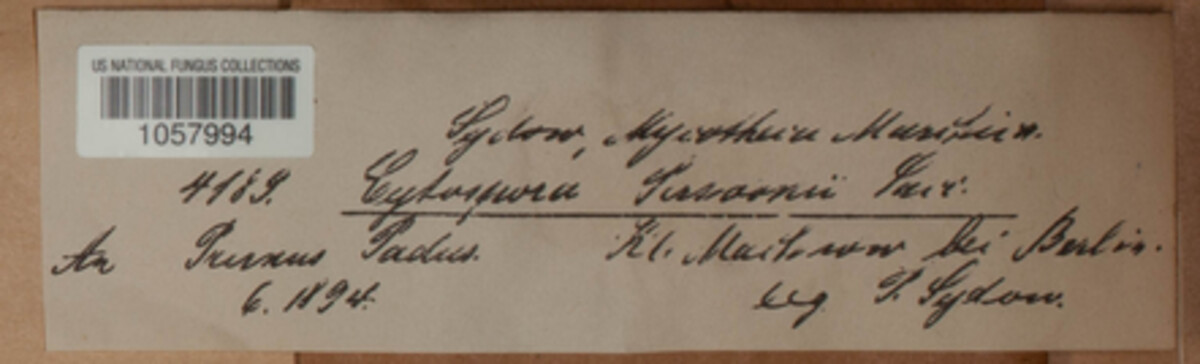 US NATIONAL FUNGUS COLLECTIONS
1057994
Sydow, Mycotheca Marchica.
4189. Cytospora Persoonii Sacc.
An Prunus Padus. Kl. Machnow bei Berlin.
6. 1894. leg P. Sydow.